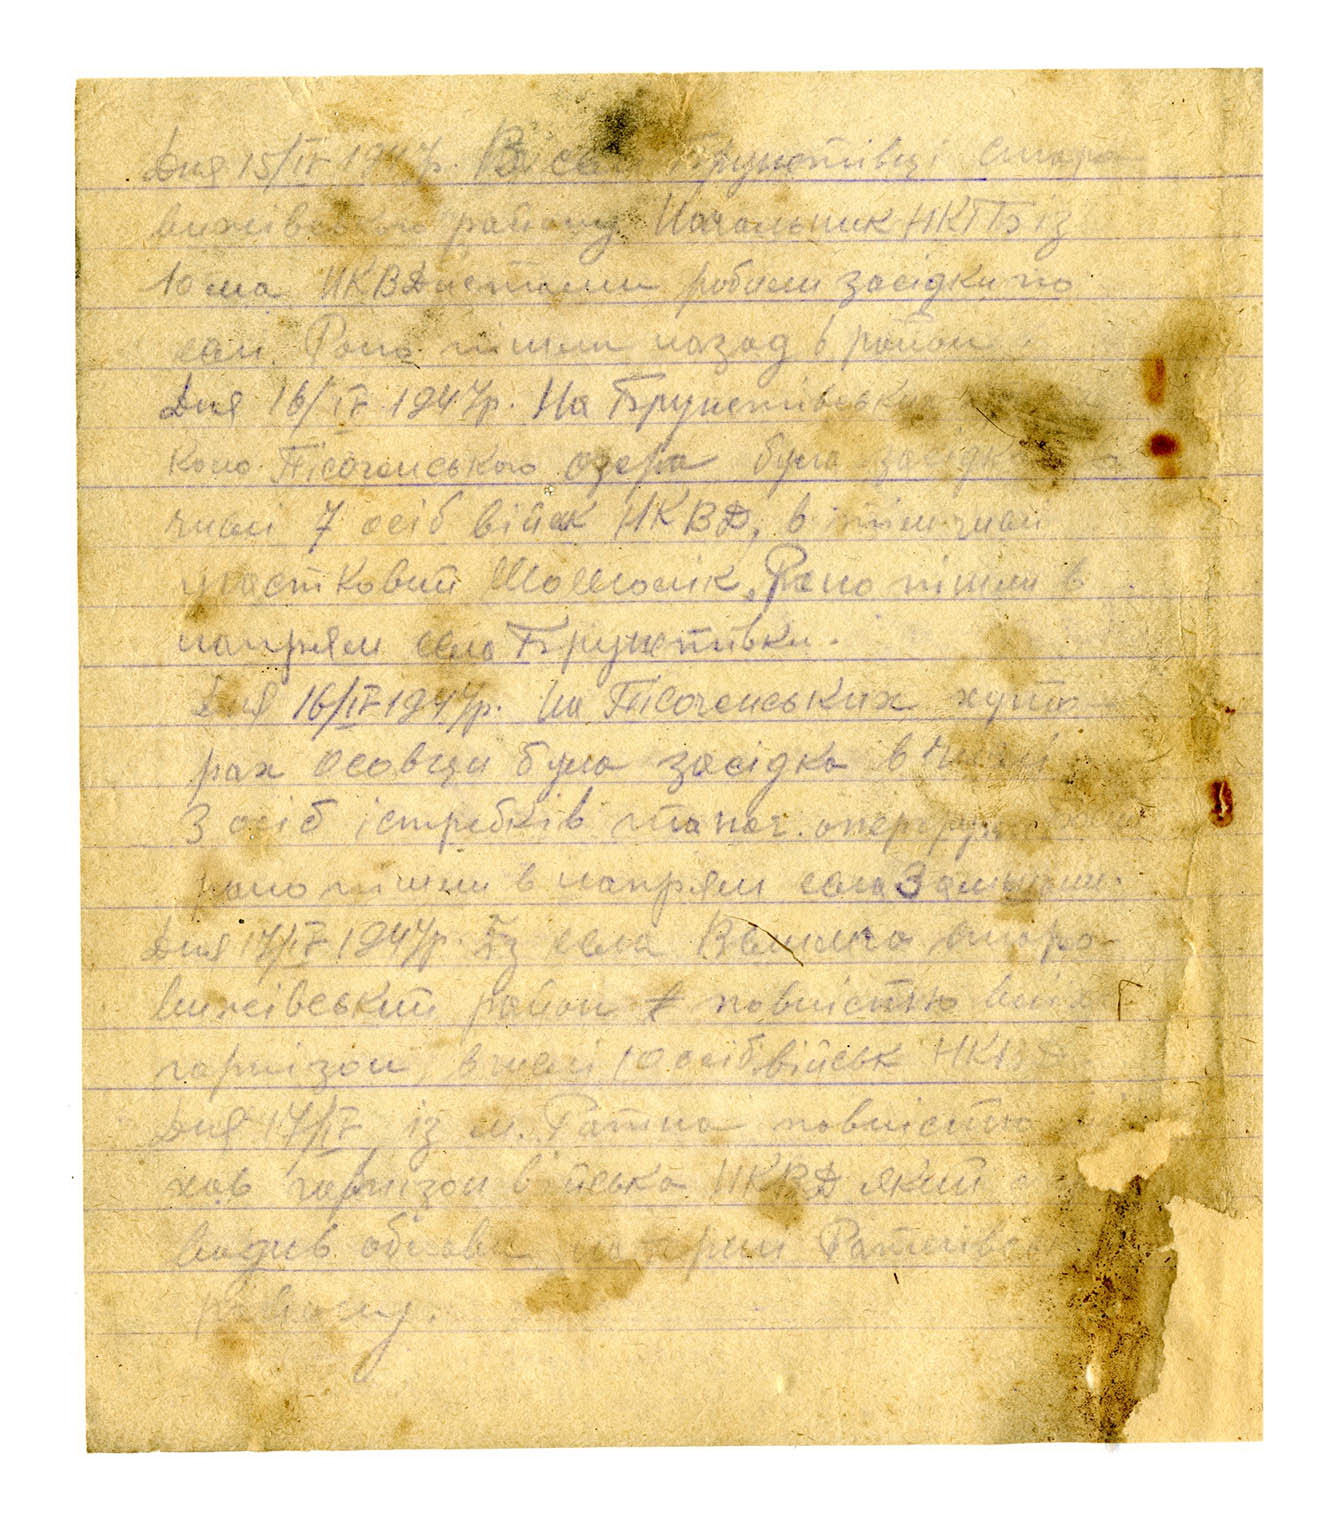 Дня 15/IV 1947р. В селі Брунетівці Старо-
вижівського району Начальник НКГБ із
10 ма НКВДистами робили засідки по
селі. Рано пішли назад в район
Дня 16/IV 1947р. На Брунетівських
коло Пісоченського озера була засідка
числі 7 осіб військ НКВД, в тім числі
участковий Рано пішли в
напрям села Брунетівки.
Дня 16/IV 1947р. На Пісоченських хуто-
рах Осовци була засідка в числі
3 осіб істребків та нач.
рано пішли в напрям села
Дня 17/IV 1947р. Із села Старо-
вижівський район повністю виїх
гарнізон в числі 10 осіб військ НКВД
Дня 17/IV із м. Ратна повністю
хав гарнізон війська НКВД який
водив облави на терені Ратнівськ
району.